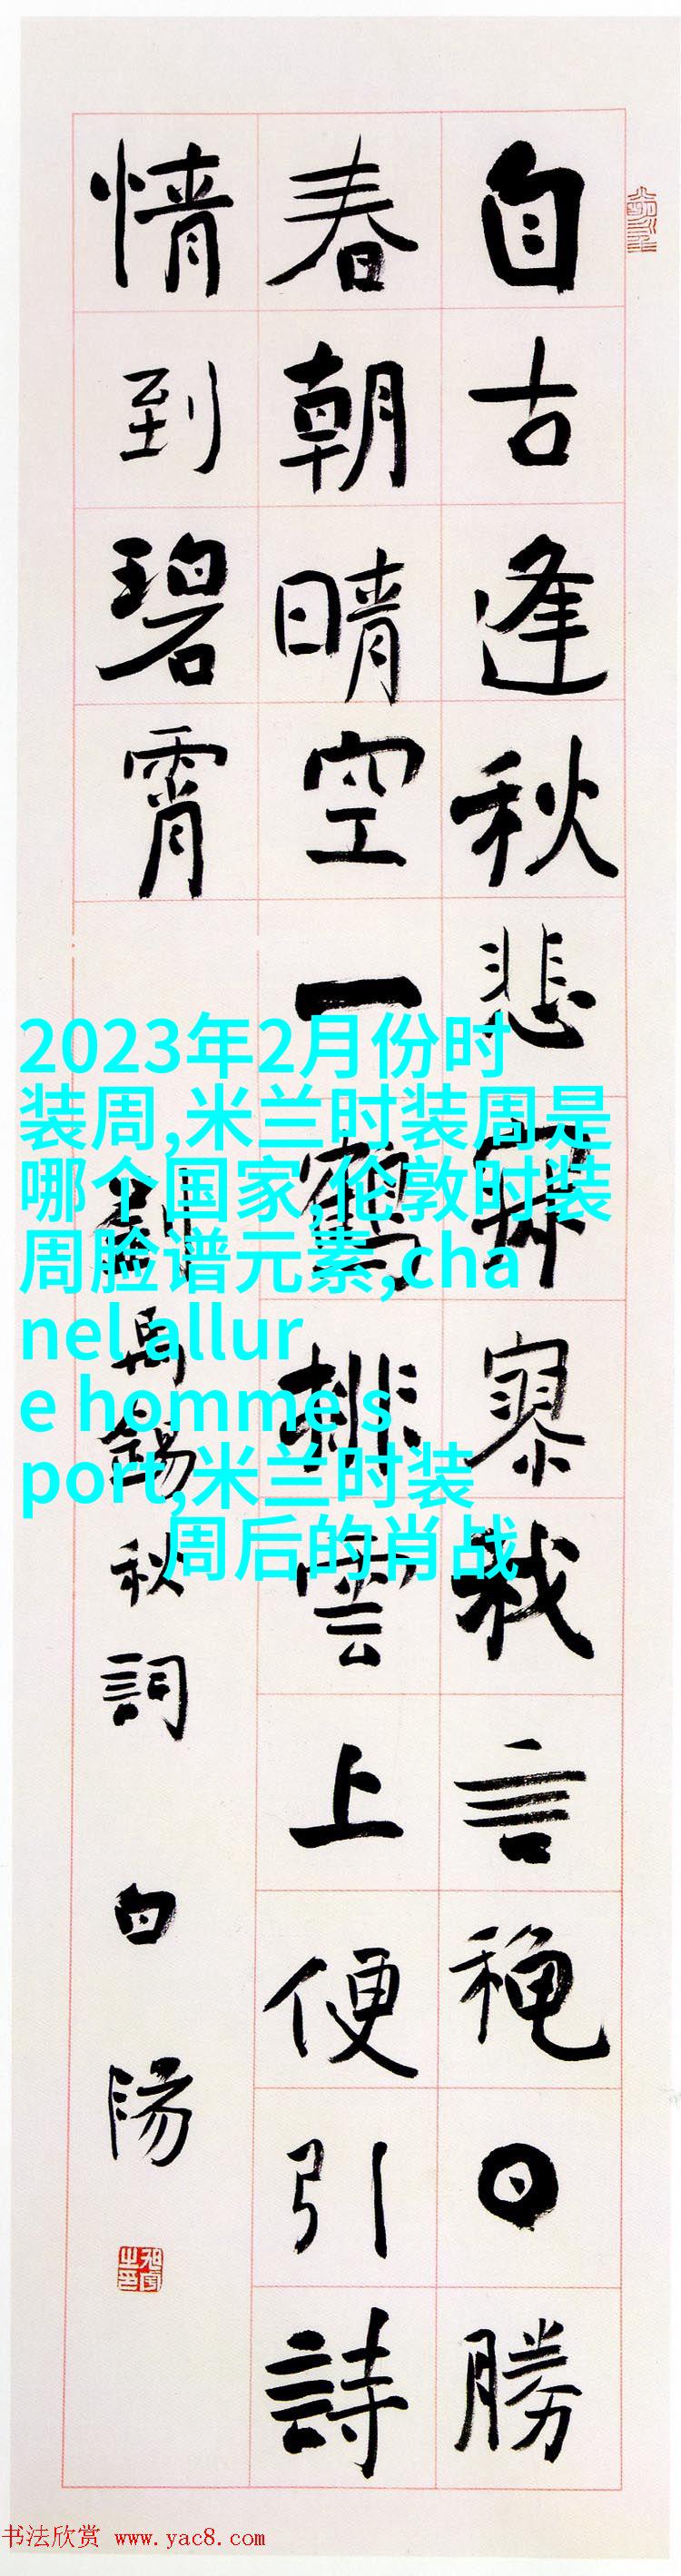 自古逢秋悲寂寥我言穐日勝
春朝晴空一鶴排雲上便引詩
情到碧霄
劉禹錫秋詞 白陽
2023年2月份时
装周,米兰时装周是
哪个国家,伦敦时装
周脸谱元素,cha
nel allur
e homme s
port,米兰时装
周后的肖战
书法欣赏 www.yac8.com